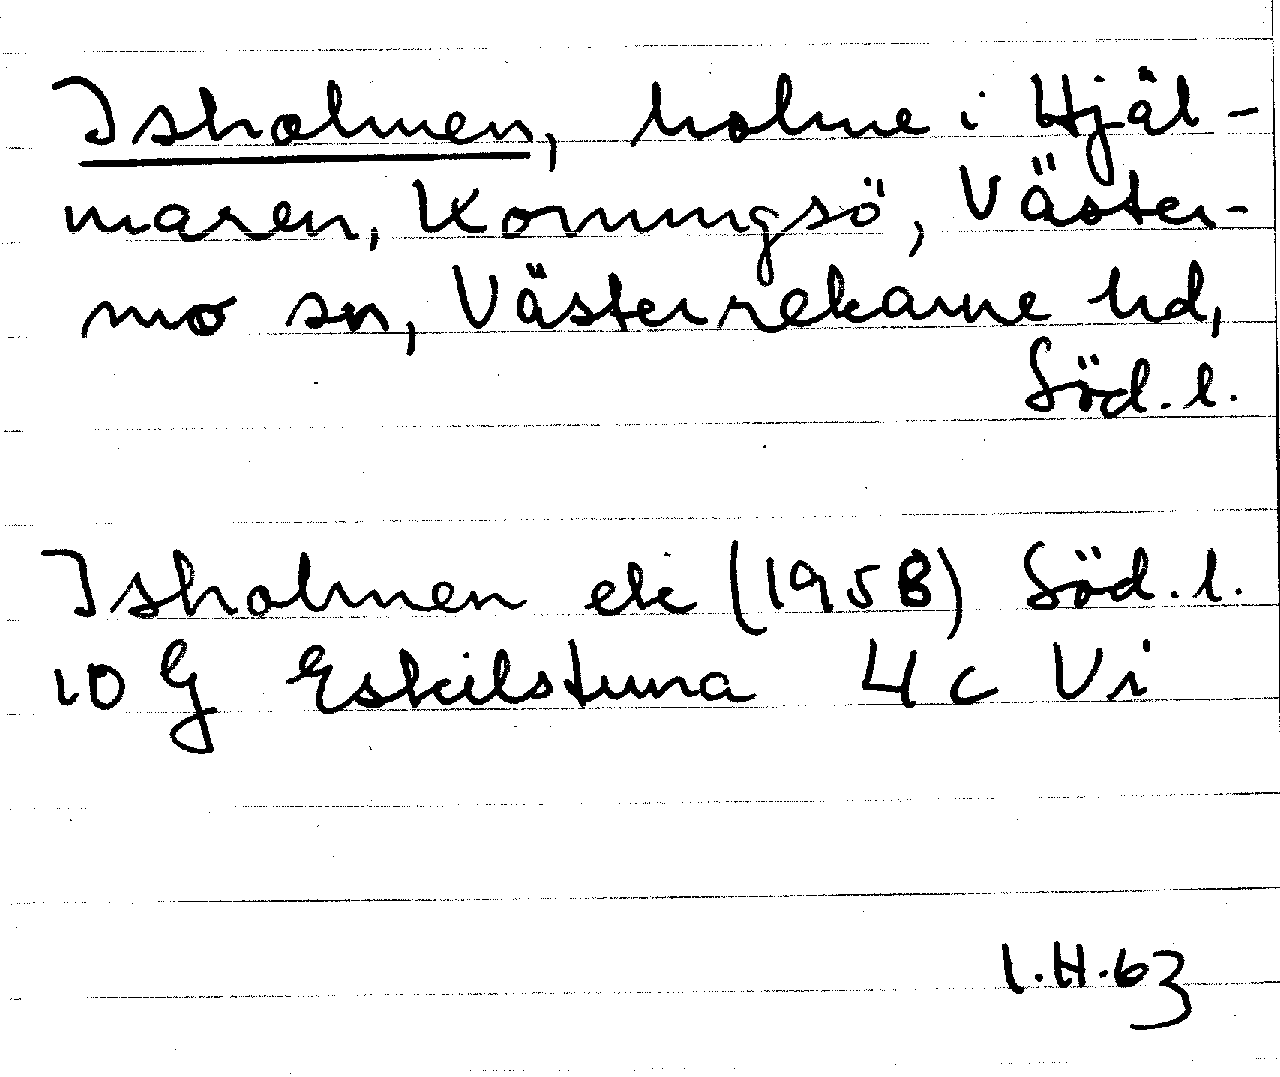 Isholmen, holme i Hjäl-
maren, Konungsö, Väster-
mo sn, Västerrekarne hd,
Söd. l.
Isholmen ek (1958) Söd. l.
10 G Eskilstuna 4 c Vi
I.H.63